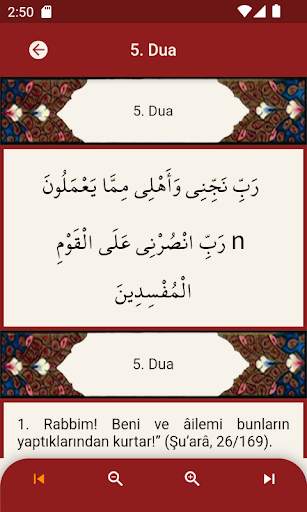 2:50
5. Dua
5. Dua
رَبِّ نَجِّنِى وَأَهْلِى مِمَّا يَعْمَلُونَ
n رَبِّ انْصُرْنِى عَلَى الْقَوْمِ
الْمُفْسِدِينَ
5. Dua
1. Rabbim! Beni ve âilemi bunların
yaptıklarından kurtar!” (Şu’arâ, 26/169).